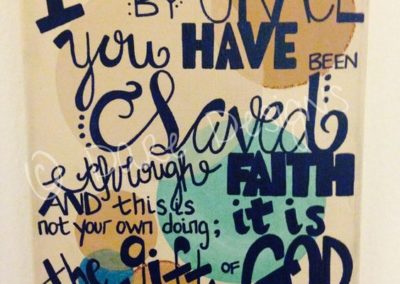 BY GRACE
you HAVE BEEN
Saved
through FAITH
AND this is
not your own doing; it is
the gift OF GOD
Designs